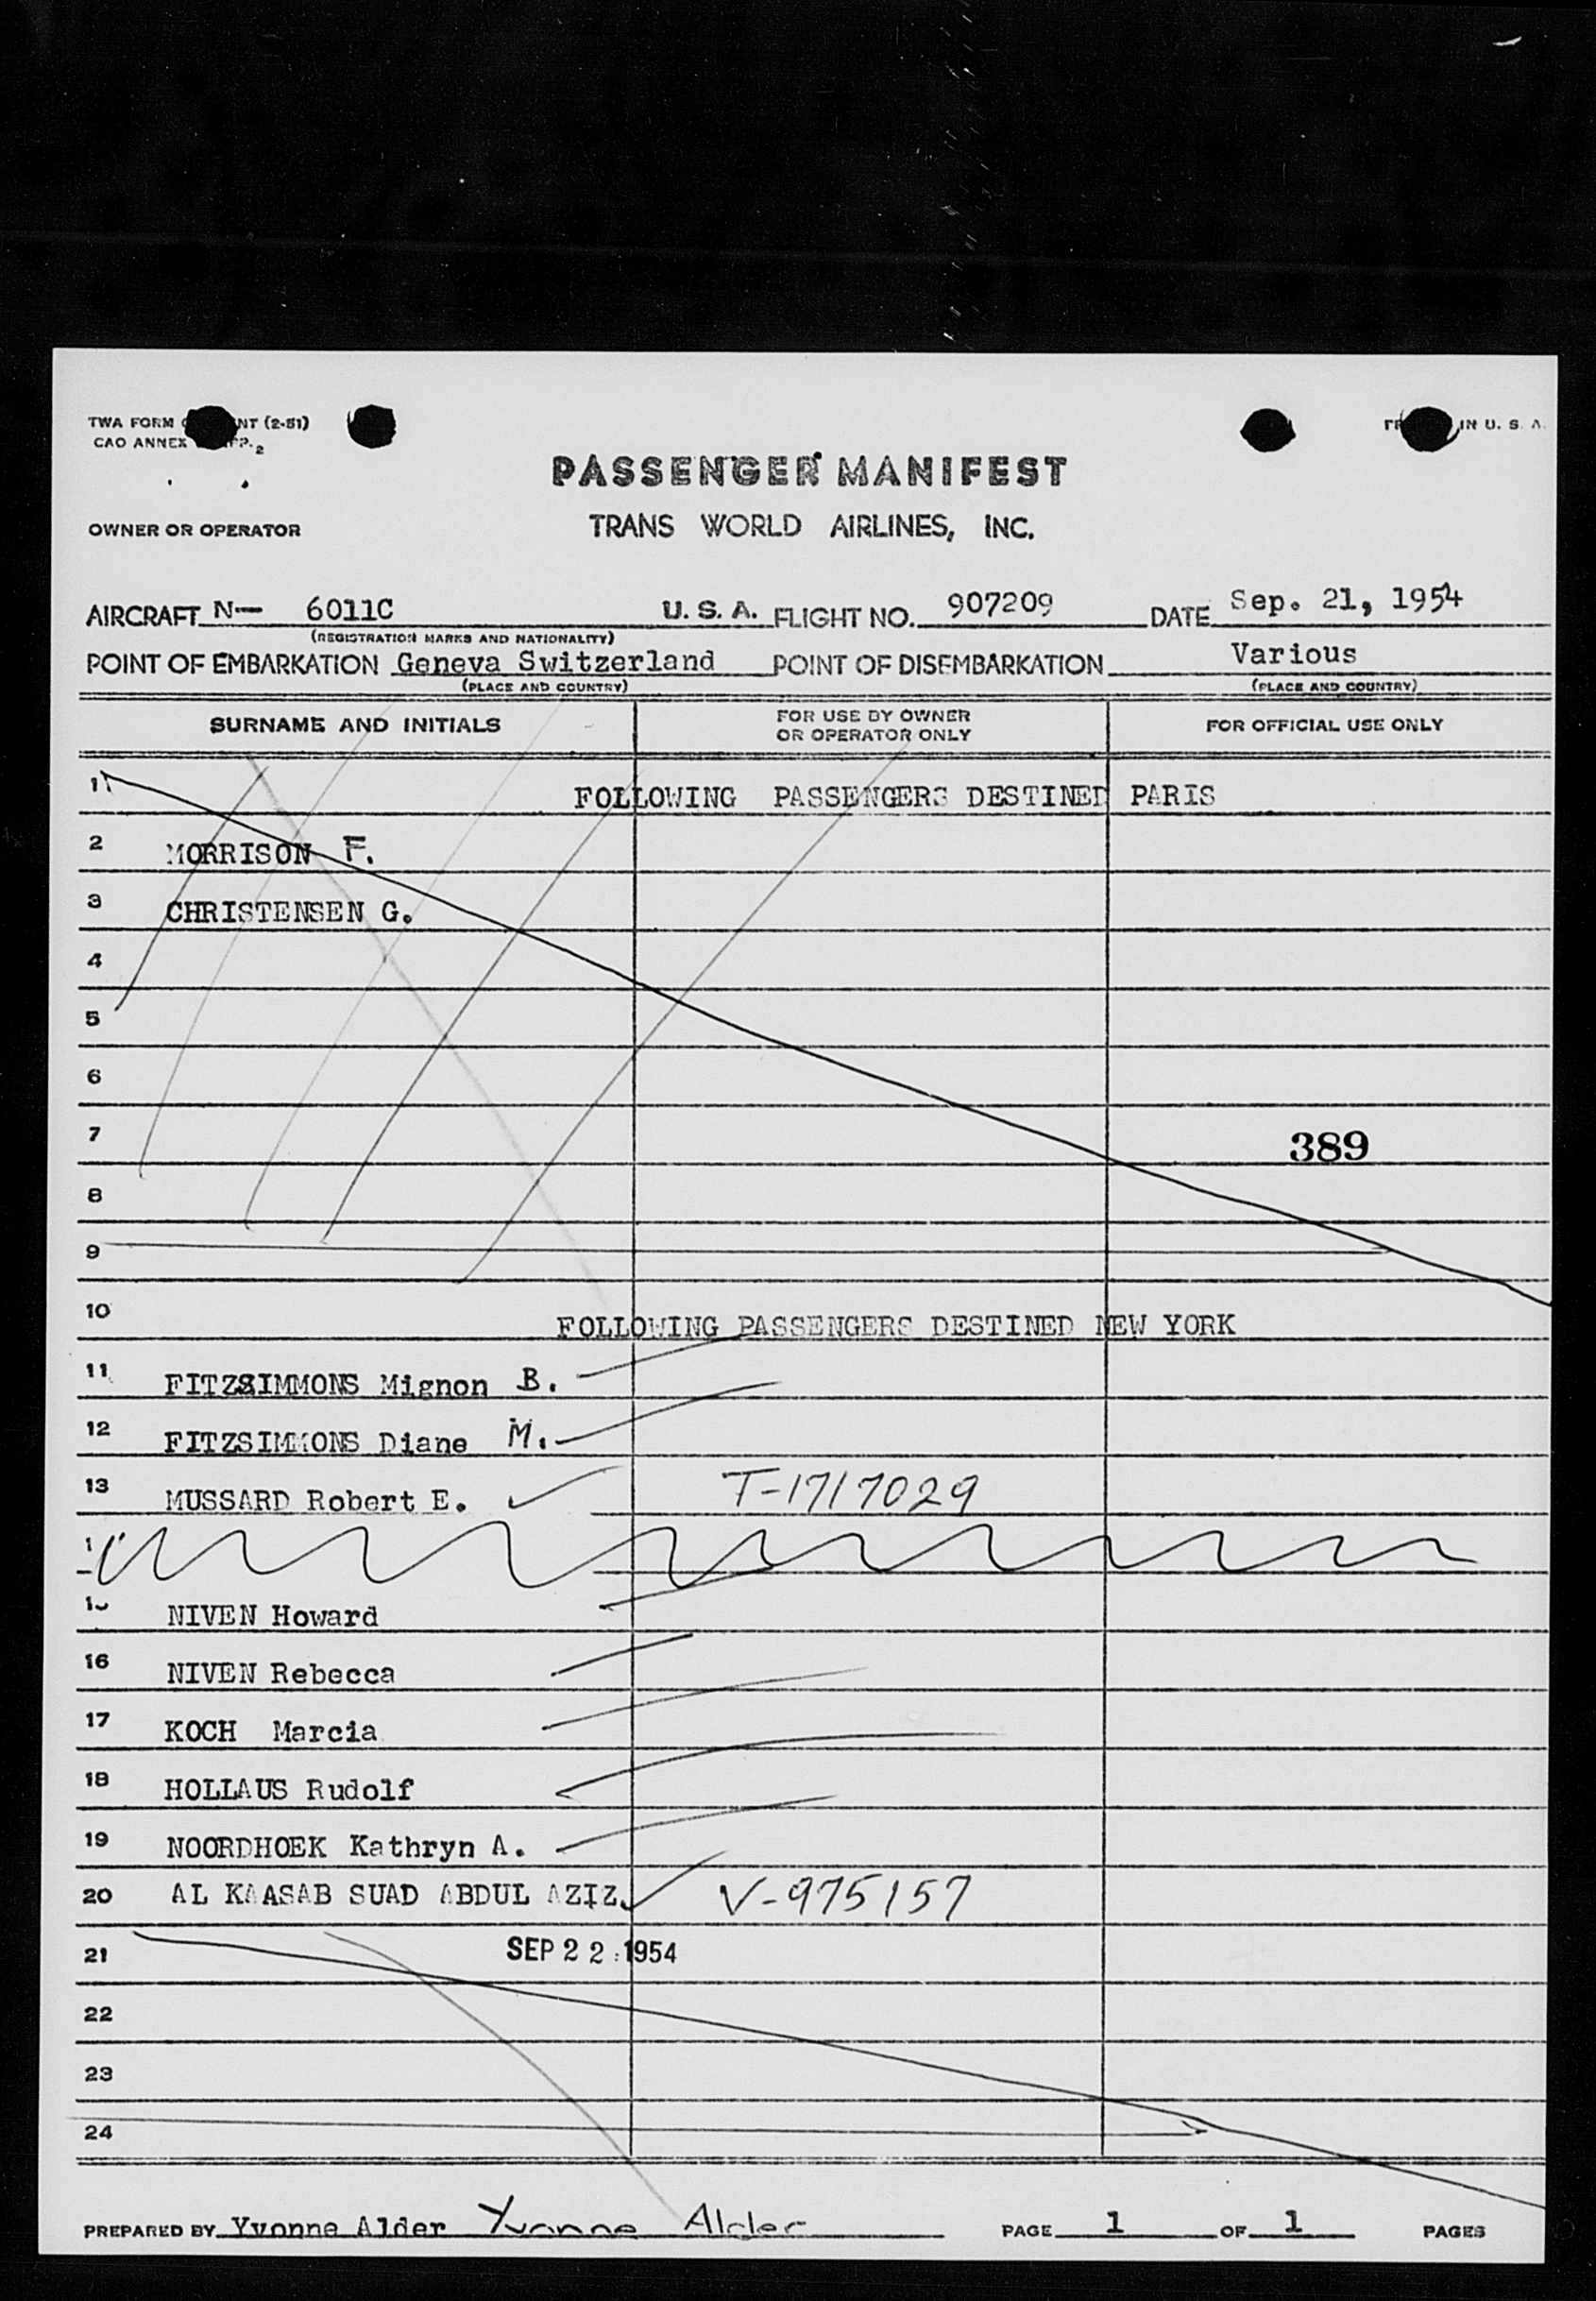 TWA FORM NT (2-51)
CAO ANNEX 2
IN U. S. A.
PASSENGER MANIFEST
OWNER OR OPERATOR
TRANS WORLD AIRLINES, INC.
AIRCRAFT N— 6011C U. S. A. FLIGHT NO. 907209 DATE Sep. 21, 1954
(REGISTRATION MARKS AND NATIONALITY)
POINT OF EMBARKATION Geneva Switzerland POINT OF DISEMBARKATION Various
(PLACE AND COUNTRY) (PLACE AND COUNTRY)
SURNAME AND INITIALS
FOR USE BY OWNER
OR OPERATOR ONLY
FOR OFFICIAL USE ONLY
1 FOLLOWING PASSENGERS DESTINED PARIS
2 MORRISON F.
3 CHRISTENSEN G.
4
5
6
7 389
8
9
10 FOLLOWING PASSENGERS DESTINED NEW YORK
11 FITZSIMMONS Mignon B.
12 FITZSIMMONS Diane M.
13 MUSSARD Robert E. T-1717029
NIVEN Howard
16 NIVEN Rebecca
17 KOCH Marcia
18 HOLLAUS Rudolf
19 NOORDHOEK Kathryn A.
20 AL KAASAB SUAD ABDUL AZIZ. V-975157
21 SEP 22 1954
22
23
24
PREPARED BY Yvonne Alder Yvonne Alder PAGE 1 OF 1 PAGES